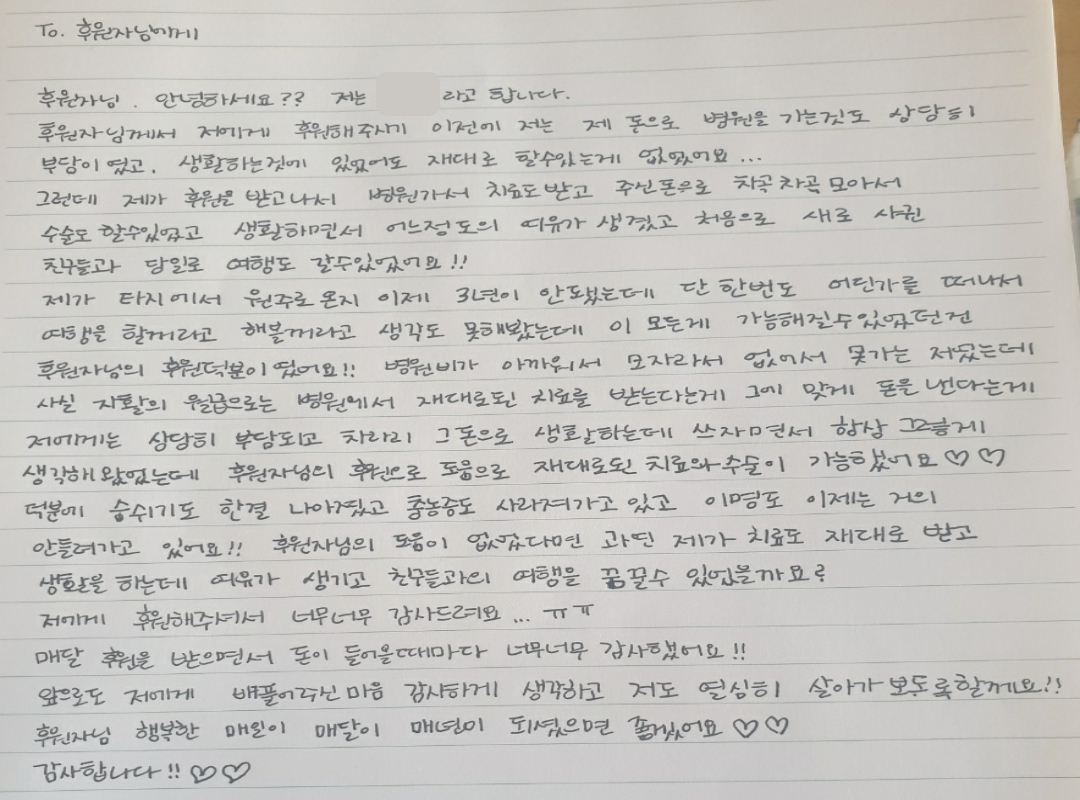 To. 후원자님에게
후원자님. 안녕하세요?? 저는 라고 합니다.
후원자님께서 저에게 후원해주시기 이전에 저는 제 돈으로 병원을 가는것도 상당히
부담이 였고, 생활하는것에 있었어도 재대로 할수있는게 없었어요...
그런데 제가 후원을 받고나서 병원가서 치료도 받고 주신돈으로 차곡차곡 모아서
수술도 할수있었고 생활하면서 어느정도의 여유가 생겼고 처음으로 새로 사귄
친구들과 당일로 여행도 갈수있었어요!!
제가 타지에서 원주로 온지 이제 3년이 안됐는데 단 한번도 어딘가를 떠나서
여행을 할꺼라고 해볼꺼라고 생각도 못해봤는데 이 모든게 가능해질수있었던건
후원자님의 후원덕분이였어요!! 병원비가 아까워서 모자라서 없어서 못가는 저였는데
사실 자활의 월급으로는 병원에서 재대로된 치료를 받는다는게 그에 맞게 돈을 낸다는게
저에게는 상당히 부담되고 차라리 그돈으로 생활하는데 쓰자면서 항상 그렇게
생각해왔었는데 후원자님의 후원으로 도움으로 재대로된 치료와 수술이 가능했어요♡♡
덕분에 숨쉬기도 한결 나아졌고 충농증도 사라져가고 있고 이명도 이제는 거의
안들려가고 있어요!! 후원자님의 도움이 없었다면 과연 제가 치료도 재대로 받고
생활을 하는데 여유가 생기고 친구들과의 여행을 꿈꿀수 있었을까요?
저에게 후원해주셔서 너무너무 감사드려요... ㅠㅠ
매달 후원을 받으면서 돈이 들어올때마다 너무너무 감사했어요!!
앞으로도 저에게 배풀어주신 마음 감사하게 생각하고 저도 열심히 살아가 보도록할께요!!
후원자님 행복한 매일이 매달이 매년이 되셨으면 좋겠어요♡♡
감사합니다!!♡♡